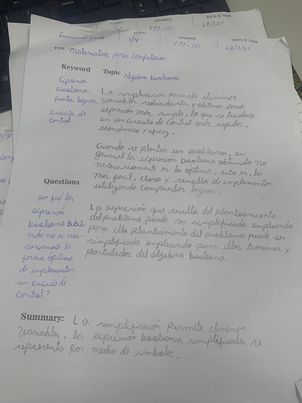 Matemática para computación
Keyword
Topic Álgebra booleana
Expresión
booleana.
Punta lógica
Circuito de
control
La simplificación permite eliminar
variables redundantes y obtener una
expresión más simple, lo que se traduce
en un circuito de control más rápido,
económico y eficaz.
Cuando se plantea un problema, en
general la expresión booleana obtenida no
necesariamente es la óptima, esto es, la
más fácil, clara y sencilla de implementar
utilizando compuertas lógicas.
Questions
por qué la
expresión
booleana
no es ne-
cesariamente la
forma óptima
de implementar
un circuito de
control?
La expresión que resulta del planteamiento
del problema puede ser simplificada empleando
para ello planteamiento del problema puede ser
simplificada empleando para ello teoremas y
postulados del álgebra booleana.
Summary: La simplificación permite eliminar
variables, la expresión booleana simplificada se
representa por medio de símbolos.